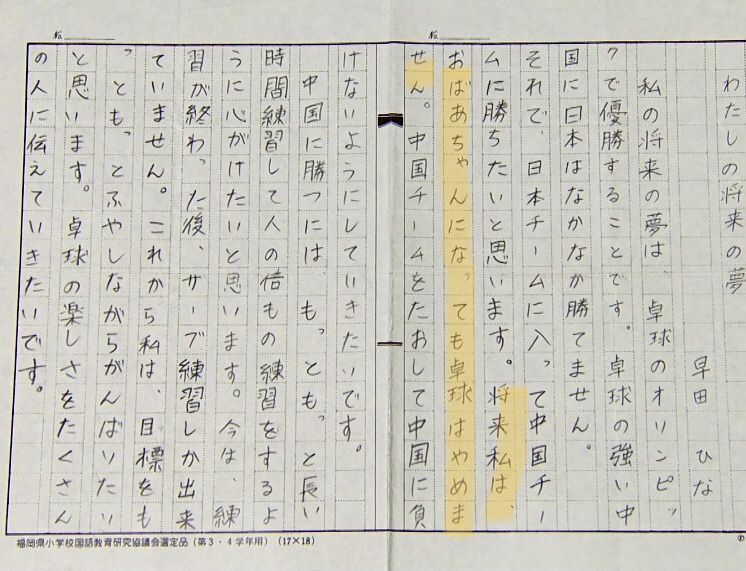 No.
No.
わたしの将来の夢
早田 ひな
私の将来の夢は、卓球のオリンピッ
クで優勝することです。卓球の強い中
国に日本はなかなか勝てません。
それで、日本チームに入って中国チー
ムに勝ちたいと思います。将来私は、
おばあちゃんになっても卓球はやめま
せん。中国チームをたおして中国に負
けないようにしていきたいです。
中国に勝つには、もっともっと長い
時間練習して人の倍もの練習をするよ
うに心がけたいと思います。今は、練
習が終わった後、サーブ練習しか出来
ていません。これから私は、目標をも
っともっとふやしながらがんばりたい
と思います。卓球の楽しさをたくさん
の人に伝えていきたいです。
福岡県小学校国語教育研究協議会選定品(第3・4学年用)(17×18)